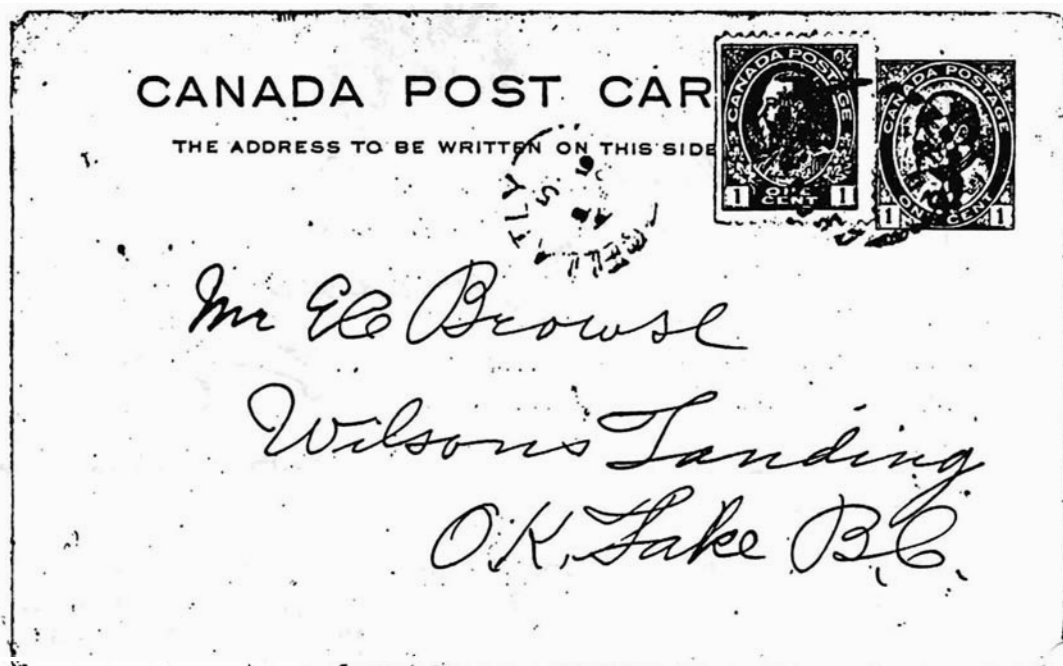 CANADA POST CAR
THE ADDRESS TO BE WRITTEN ON THIS SIDE
CANADA POSTAGE
1 ONE CENT 1
CANADA POSTAGE
1 ONE CENT 1
Mr EC Browse
Wilsons Landing
O.K. Lake B.C.